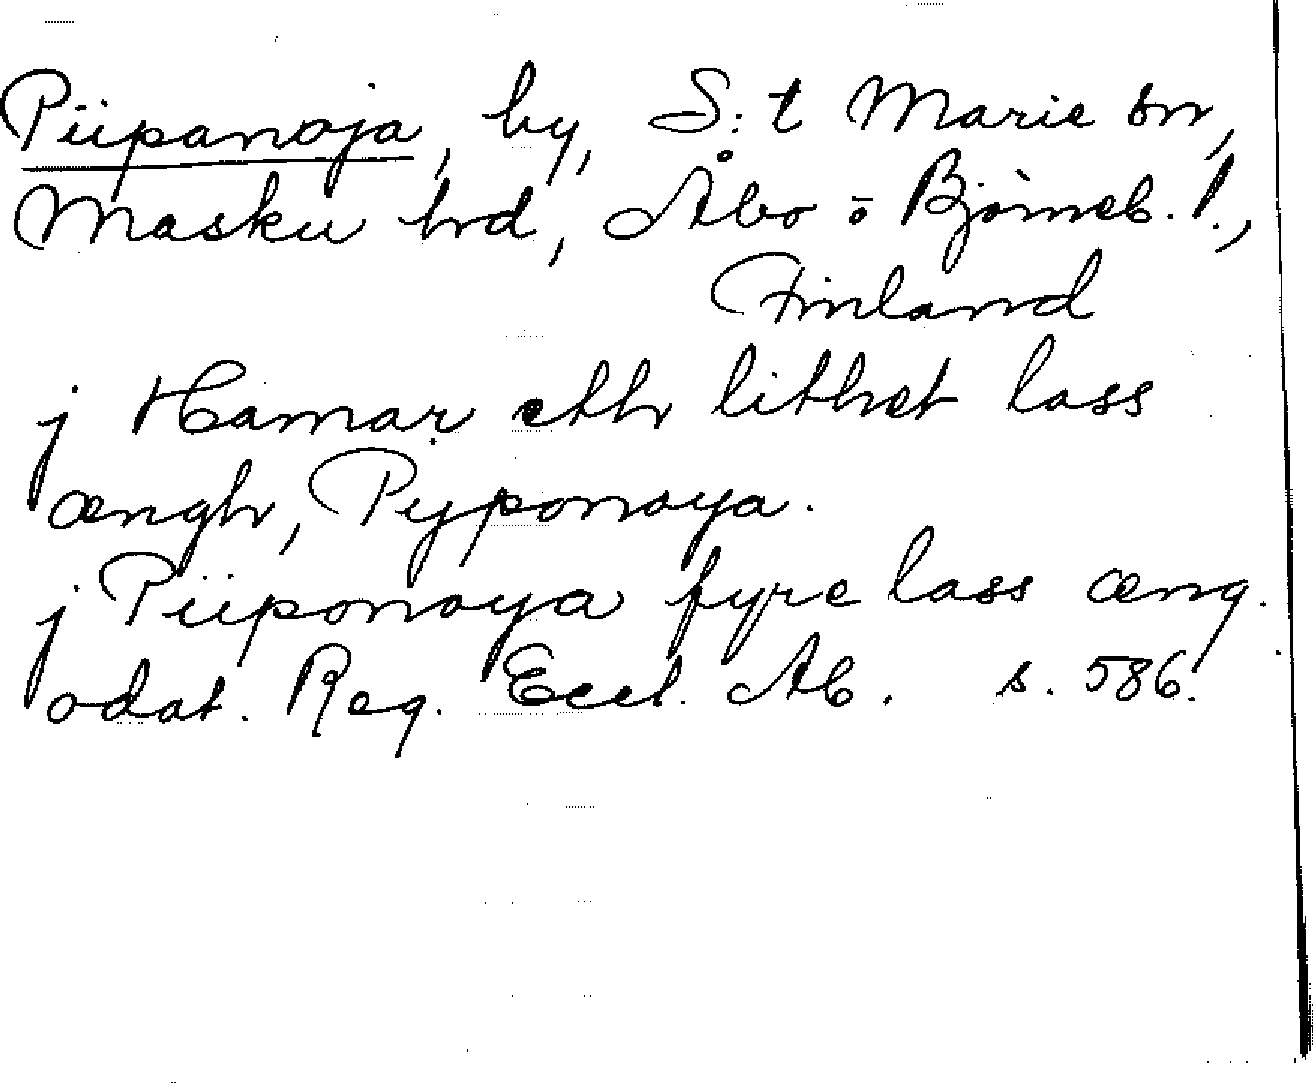 Piipanoja, by, S:t Marie sn,
Masku hrd, Åbo o Björneb. l.,
Finland
j Hamar eth lithet lass
ængh, Pyponoya.
j Piiponoya fyre lass æng.
odat. Reg. Eccl. Ab. s. 586.